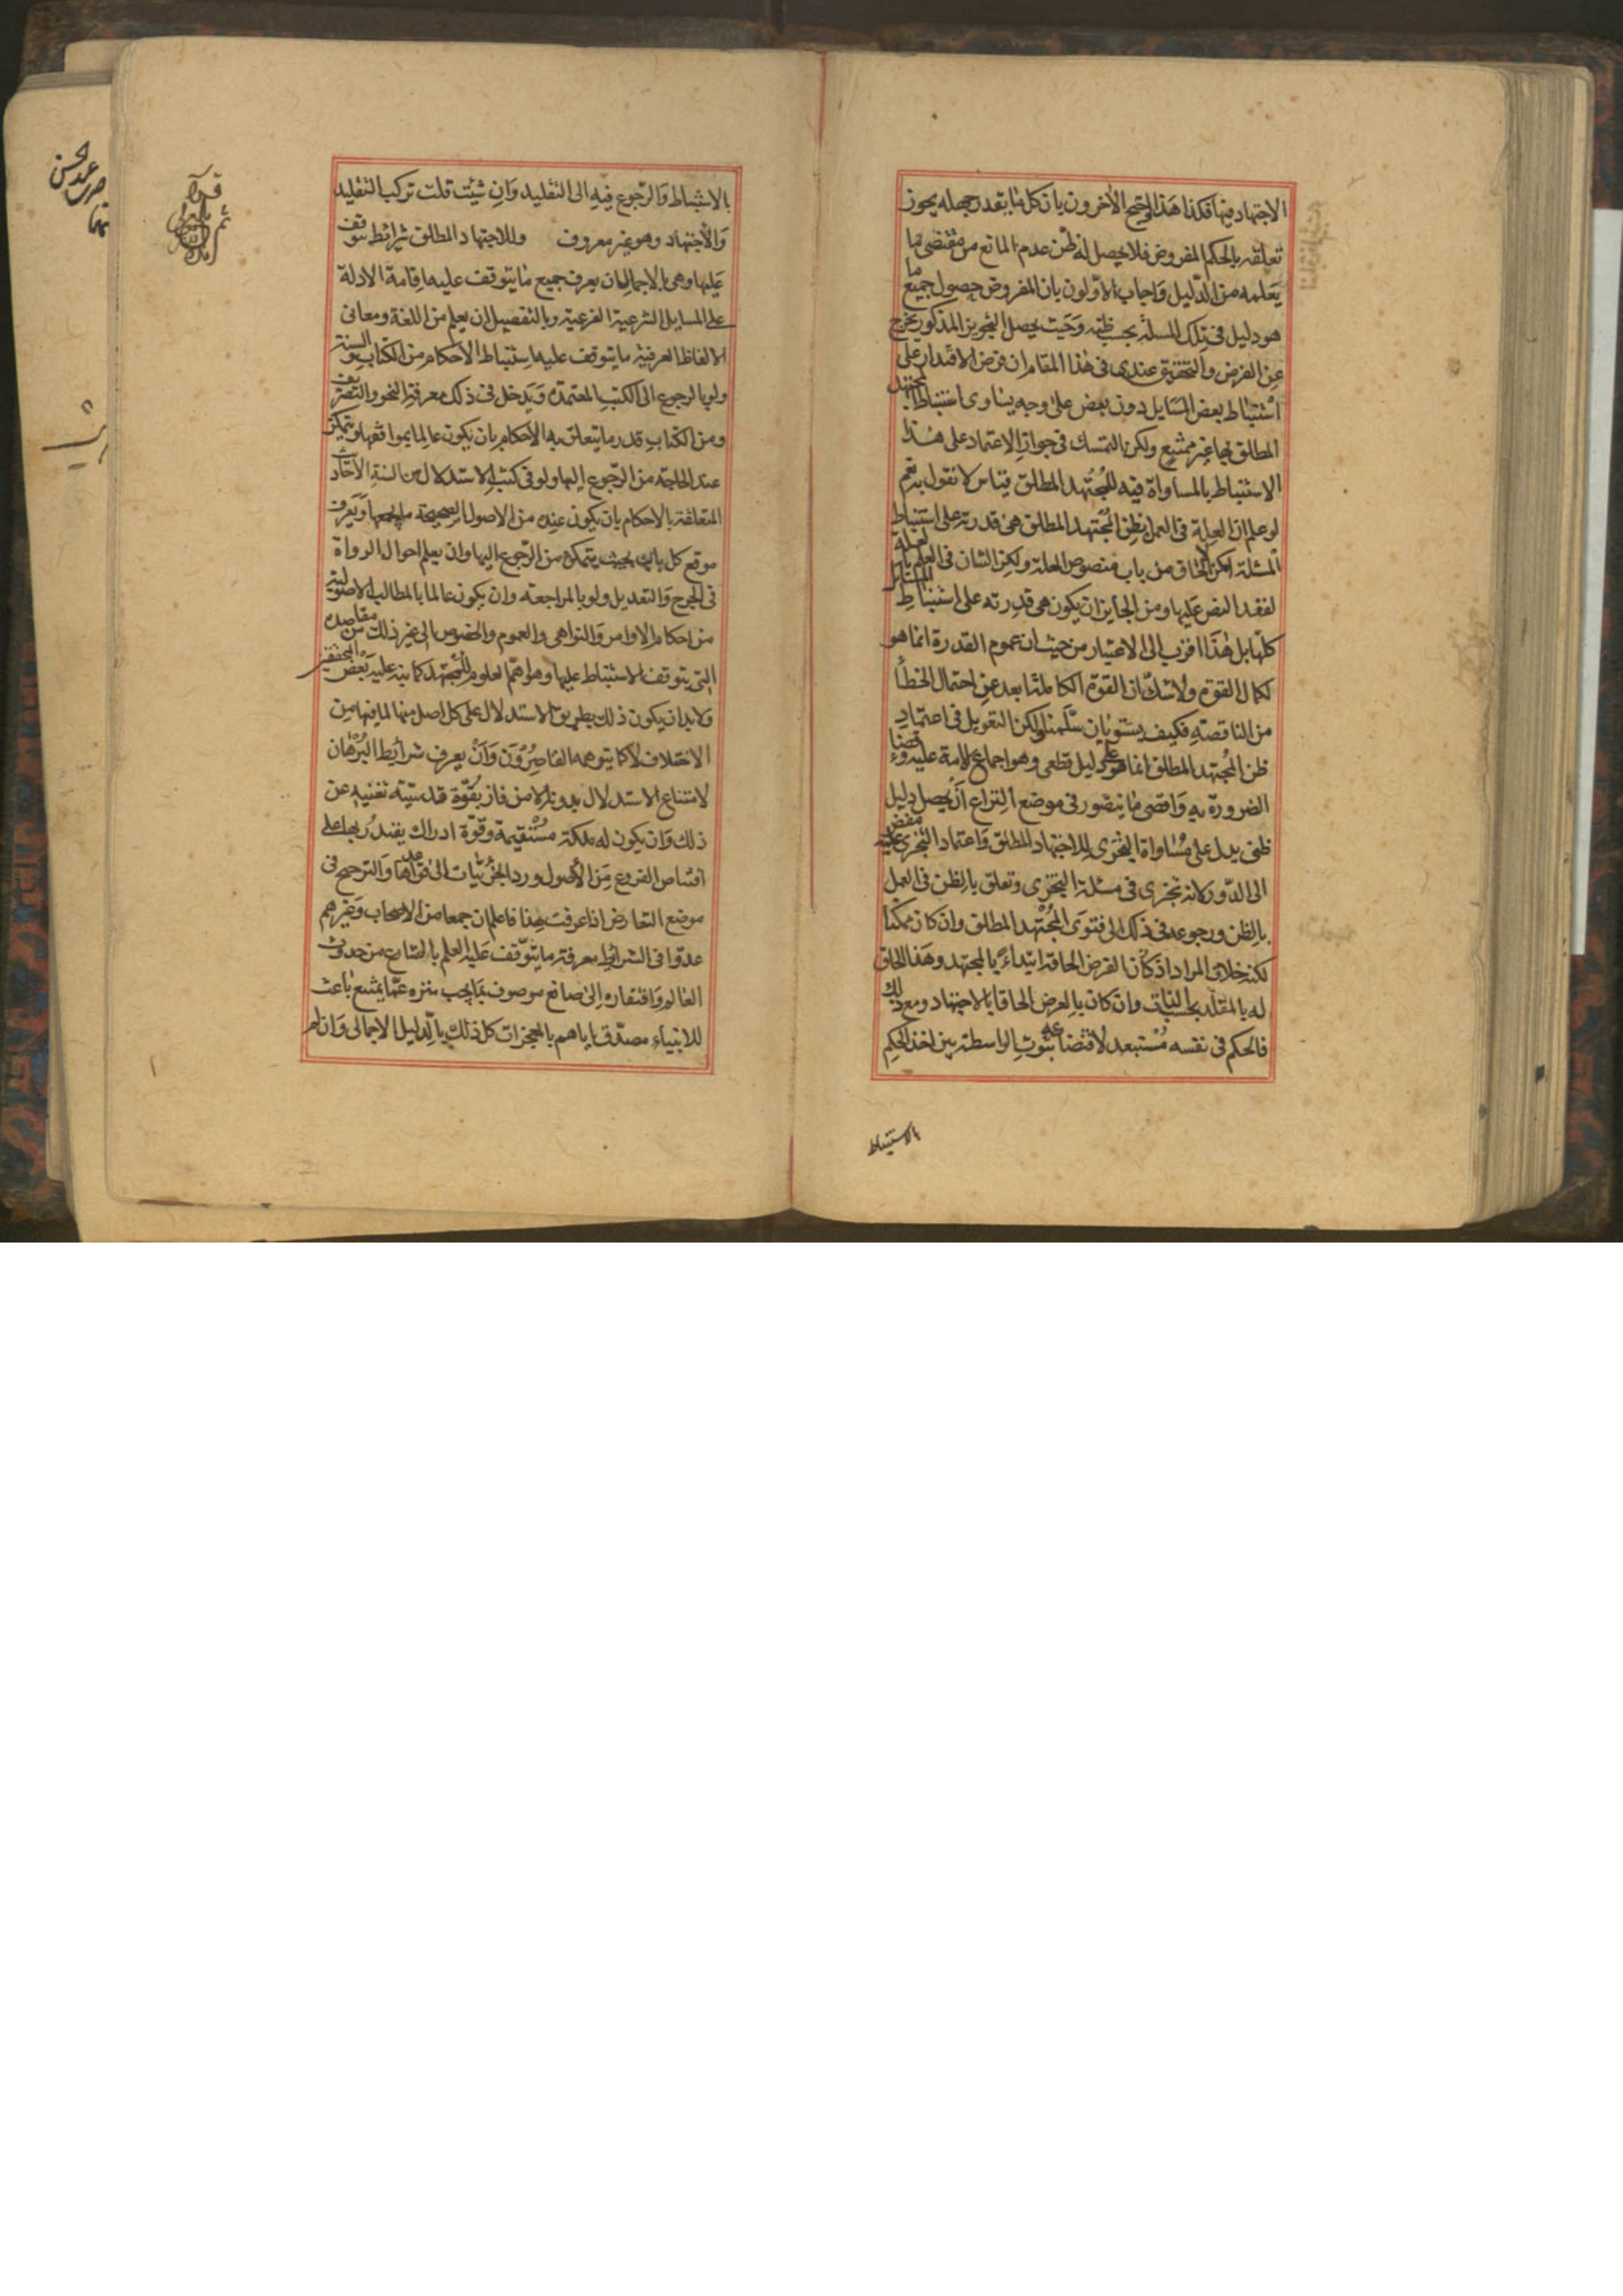 الاجتهاد فيها فكذا هذا واحتج الآخرون بان كل ما يقدر جهله يجوز
تعلقه بالحكم المفروض فلا يحصل له ظن عدم المانع من مقتضى ما
يعلمه من الدليل واجاب الاولون بان المفروض حصول جميع ما
هو دليل في تلك المسئلة بحسب ظنه وحيث يحصل التجويز المذكور يخرج
عن الفرض والتحقيق عندى في هذا المقام ان فرض الاقتدار على
استنباط بعض المسايل دون بعض على وجه يساوى استنباط المجتهد
المطلق لها غير ممتنع ولكن التمسك في جواز الاعتماد على هذا
الاستنباط بالمساواة فيه للمجتهد المطلق قياس لا نقول به نعم
لو علم ان العلة في العمل بظن المجتهد المطلق هي قدرته على استنباط
المسئلة امكن الالحاق من باب منصوص العلة ولكن الشان في العلم بالعلة
لفقد النص عليها ومن الجايز ان يكون هي قدرته على استنباط المسائل
كلها بل هذا اقرب الى الاعتبار من حيث ان عموم القدرة انما هو
لكمال القوة ولا شك ان القوة الكاملة ابعد عن احتمال الخطأ
من الناقصة فكيف يستويان سلمنا ولكن التعويل في اعتماد
ظن المجتهد المطلق انما هو على دليل قطعي وهو اجماع الامة عليه وقضاء
الضرورة به واقصى ما يتصور في موضع النزاع ان يحصل دليل
ظنى يدل على مساواة التجزى للاجتهاد المطلق واعتماد التجزى عليه مفض
الى الدور لانه تجزى في مسئلة التجزى وتعلق بالظن في العمل
بالظن ورجوعه في ذلك الى فتوى المجتهد المطلق وان كان ممكنا
لكنه خلاف المراد اذ كان الفرض الحاقه ابتداء بالمجتهد وهذا الحاق
له بالمقلد بحسب الذات وان كان بالعرض الحاقا بالاجتهاد ومع ذلك
فالحكم في نفسه مستبعد لاقتضائه ثبوت الواسطة بين اخذ الحكم
بالاستنباط
بالاستنباط والرجوع فيه الى التقليد وان شئت قلت تركب التقليد
والاجتهاد وهو غير معروف وللاجتهاد المطلق شرائط يتوقف
عليها وهي بالاجمال ان يعرف جميع ما يتوقف عليه اقامة الادلة
على المسايل الشرعية الفرعية وبالتفصيل ان يعلم من اللغة ومعانى
الالفاظ العرفية ما يتوقف عليه استنباط الاحكام من الكتاب والسنة
ولو بالرجوع الى الكتب المعتمدة ويدخل في ذلك معرفة النحو والتصريف
ومن الكتاب قدر ما يتعلق به الاحكام بان يكون عالما بمواقعها ويتمكن
عند الحاجة من الرجوع اليها ولو في كتب الاستدلال من السنة الاحاديث
المتعلقة بالاحكام بان يكون عنده من الاصول الصحيحة ما يجمعها ويعرف
موقع كل باب بحيث يتمكن من الرجوع اليها وان يعلم احوال الرواة
في الجرح والتعديل ولو بالمراجعة وان يكون عالما بالمطالب الاصولية
من احكام الاوامر والنواهي والعموم والخصوص الى غير ذلك من مقاصده
التى يتوقف الاستنباط عليها وهو اهم العلوم للمجتهد كما نبه عليه بعض المحققين
ولا بد ان يكون ذلك بطريق الاستدلال على كل اصل منها لما فيها من
الاختلاف لا كما يتوهمه القاصرون وان يعرف شرايط البرهان
لامتناع الاستدلال بدونه الا من فاز بقوة قدسية تغنيه عن
ذلك وان يكون له ملكة مستقيمة وقوة ادراك يقتدر بها على
اقتناص الفروع من الاصول ورد الجزئيات الى قواعدها والترجيح في
موضع التعارض اذا عرفت هذا فاعلم ان جمعا من الاصحاب وغيرهم
عدوا في الشرائط معرفة ما يتوقف عليه العلم بالصانع من حدوث
العالم وافتقاره الى صانع موصوف بما يجب منزه عما يمتنع باعث
للانبياء مصدق اياهم بالمعجزات كل ذلك بالدليل الاجمالى وان لم